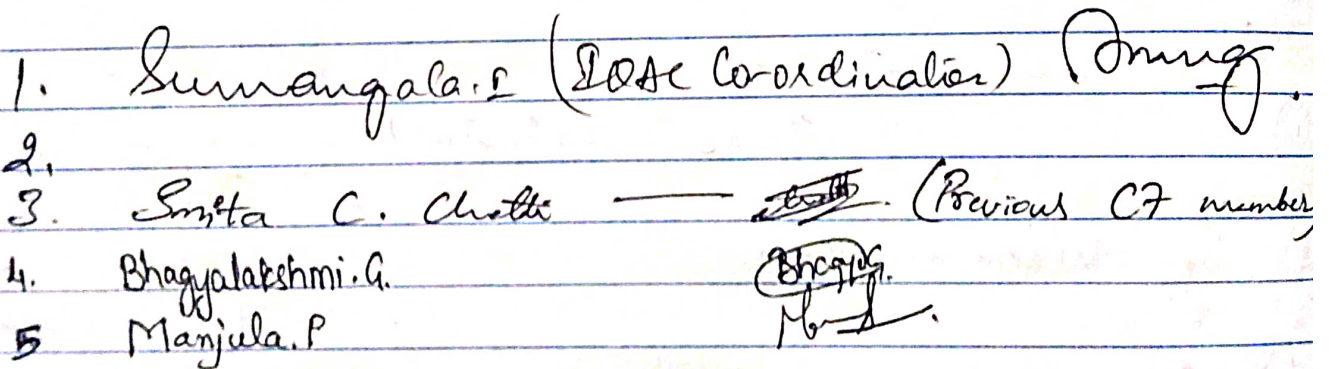 1. Sumangala.I (IQAC Co-ordinator)
2.
3. Smita C. Chatti — (Previous C7 member)
4. Bhagyalakshmi.G. Bhagya.G.
5 Manjula.P